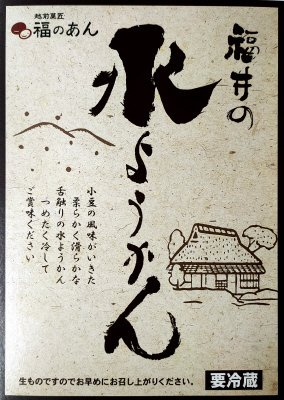 越前菓匠
福のあん
福井の
水ようかん
小豆の風味がいきた
柔らかく滑らかな
舌触りの水ようかん
つめたく冷して
ご賞味ください
生ものですのでお早めにお召し上がりください。
要冷蔵